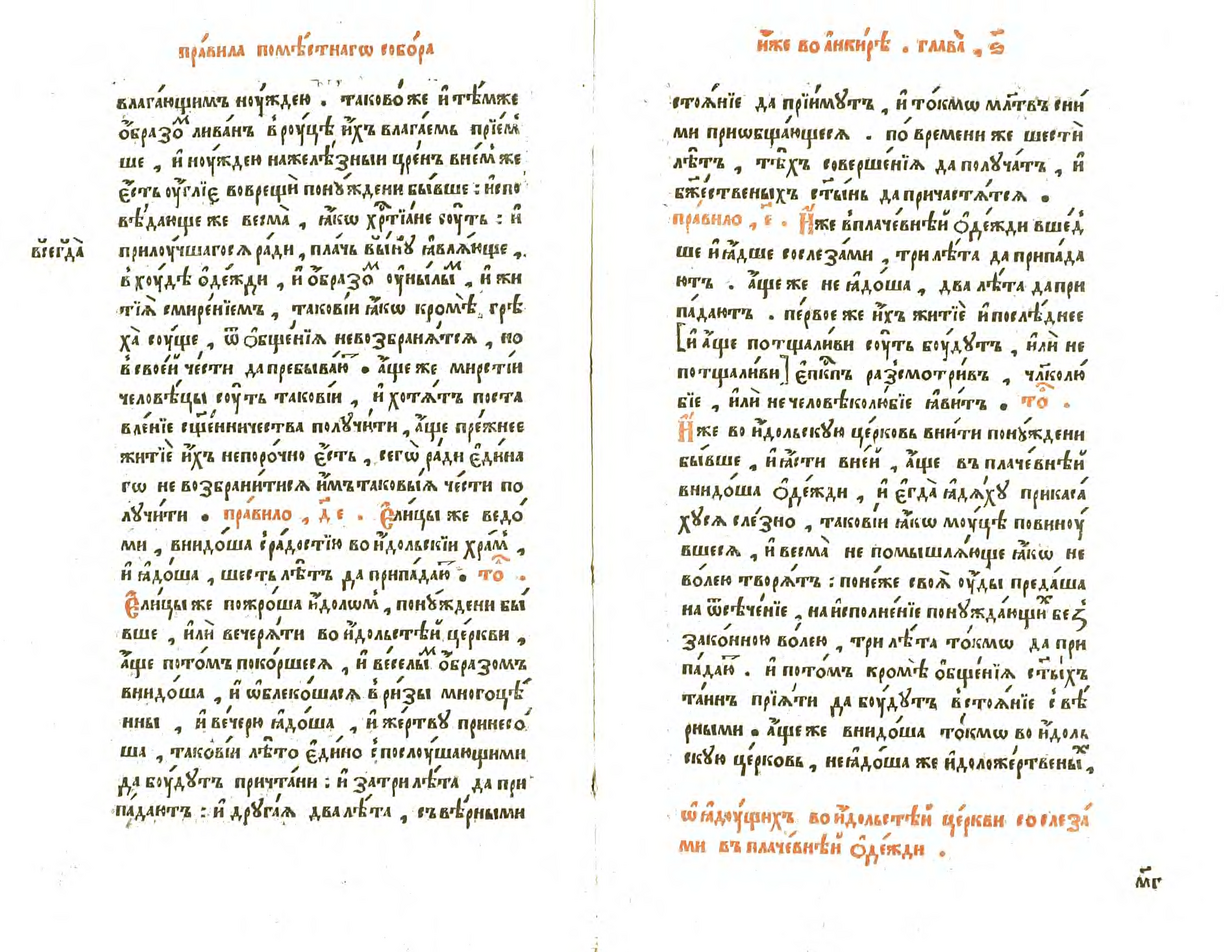 пра́вила помѣ́стнагѡ собо́ра
влага́ющимъ ноу́ждею . таково́же и҆ тѣ́мже
о҆́бразоⷨ лива́нъ в̾роу́цѣ и҆́хъ влага́емь прїе́мⷧ
ше , и҆ ноу́ждею нажелѣ́зныи цре́нъ вне́мже
є҆́сть оу҆́глїє вовре́щи пону́ждени бы́вше : и҆спо
вѣ́дающе же весма̀ , ꙗ҆́кѡ хрⷭ҇тїа́не соу́ть : и҆
всегда̀
прилоу́чшагося ра́ди , пла́чь вы́ну ꙗ҆влѧ́юще ,
в̾ хоу́дѣ ѻ҆де́жди , и҆ о҆́бразоⷨ оу҆ны́лыⷨ , и҆ жи
тїѧ̀ смире́нїемъ , таково́и ꙗ҆́кѡ кромѣ̀ грѣ
ха̀ соу́ще , ѿ ѻ҆бще́нїѧ невозбранѧ́тсѧ , но
в̾ свое́й че́сти да пребыва́юⷮ . а҆́ще же мирсті́и
человѣ́цы соу́ть таково́и , и҆ хотѧ́тъ поста
вле́нїе сщ҃е́нничества получи́ти , а҆́ще пре́жнее
житїѐ и҆́хъ непоро́чно є҆́сть , сегѡ̀ ра́ди є҆ди́на
гѡ не возбрани́тисѧ и҆́мъ таковы́ѧ че́сти по
лучи́ти . пра́вило , д҃ е . Є҆ли́цы же ведо́
ми , внидо́ша с̾ра́достїю во и҆́дольскїи хра́мⷨ ,
и҆ ꙗ҆до́ша , ше́сть лѣ́тъ да припа́даюⷮ . то̑ .
Є҆ли́цы же пожро́ша и҆́доломⷨ , пону́ждени бы́
вше , и҆лѝ вечерѧ́ти во и҆́дольстѣй це́ркви ,
а҆́ще пото́мъ поко́ршесѧ , и҆ ве́селыⷨ о҆́бразомъ
внидо́ша , и҆ ѡ҆блеко́шасѧ в̾ ри́зы многоцѣ́
нны , и҆ вече́рю ꙗ҆до́ша , и҆ же́ртву принесо́
ша , таково́и лѣ́то є҆ди́но с̾послоу́шающими
да боу́дутъ причта́ни : и҆ затри лѣ́та да при
па́даютъ : и҆ друга́ѧ два лѣ́та , съвѣ́рными
и҆́же во а҆нки́рѣ . глава̀ , ѕ҃
стоѧ́нїе да прїи́мутъ , и҆ то́кмѡ мл҃твъ с ни́
ми приѡбща́ющесѧ . по́ времени же шестѝ
лѣ́тъ , тѣ́хъ соверше́нїѧ да полу́чатъ , и҆
бжⷭ҇е́ственыхъ ст҃ы́нь да причастѧ́тсѧ .
пра́вило , е҃ . И҆́же в̾плаче́внѣй ѻ҆де́жди вше́д
ше и҆ ꙗ҆́дше со слеза́ми , три лѣ́та да припа́да
ютъ . а҆́ще же не ꙗ҆до́ша , два лѣ́та да при
па́даютъ . пе́рвое же и҆́хъ житїѐ и҆ послѣ́днее
[и҆ а҆́ще потщали́ви соу́ть боу́дутъ , и҆лѝ не
потщали́ви] є҆пⷭ҇кпъ разсмотри́въ , чл҃колю́
бїе , и҆лѝ нечеловѣколю́бїе ꙗ҆ви́тъ . то̑ .
И҆́же во и҆́дольскую це́рковь вни́ти пону́ждени
бы́вше , и҆ ꙗ҆́сти в не́й , а҆́ще въ плаче́внѣй
внидо́ша ѻ҆де́жди , и҆ є҆гда̀ ꙗ҆дѧ́ху прикаса́
хусѧ сле́зно , таково́и ꙗ҆́кѡ моу́цѣ повиноу́
вшесѧ , и҆ весма̀ не помышлѧ́юще ꙗ҆́кѡ не
во́лею творѧ́тъ : поне́же своѧ̀ оу҆́ды преда́ша
на ѿсѣче́нїе , на и҆сполне́нїе понужда́ющиⷯ без̾
зако́нною во́лею , три лѣ́та то́кмѡ да при
па́даюⷮ . и҆ пото́мъ кромѣ̀ ѻ҆бще́нїѧ ст҃ы́хъ
та́инъ прїѧ́ти да боу́дутъ в̾ стоѧ́нїе с̾ вѣ́
рными . а҆́ще же внидо́ша то́кмѡ во и҆́доль
скую це́рковь , не ꙗ҆до́ша же и҆доложе́ртвеныⷯ ,
ѡ҆ ꙗ҆доу́щихъ во и҆́дольстѣй це́ркви со слеза́
ми въ плаче́внѣй ѻ҆де́жди .
м҃г